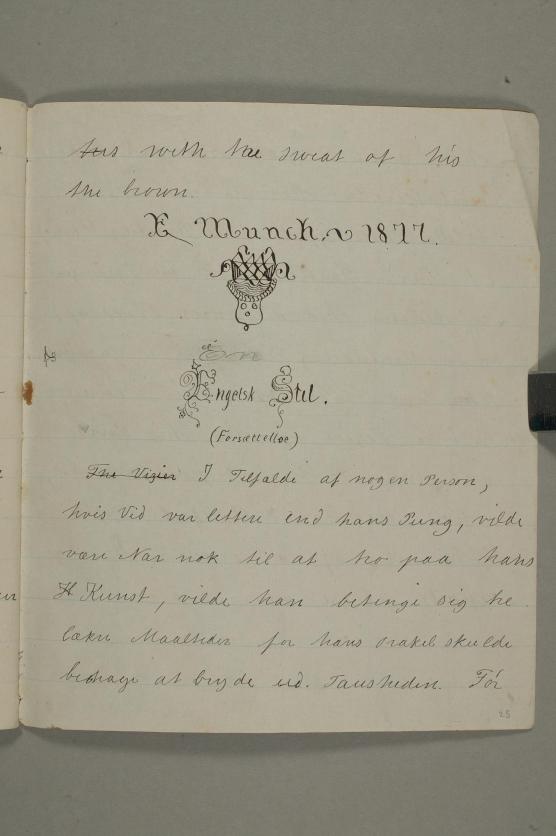 with the sweat of his
the brown.
E Munch. 1877.
Engelsk Stil.
(Forsættelse)
The Vizier I Tilfælde af nogen Person,
hvis Vid var lettere end hans Pung, vilde
være Nar nok til at tro paa hans
H Kunst, vilde han betinge sig he
lækre Maaltider for hans Orakel skulde
behage at bryde ud. Tausheden. Før
25